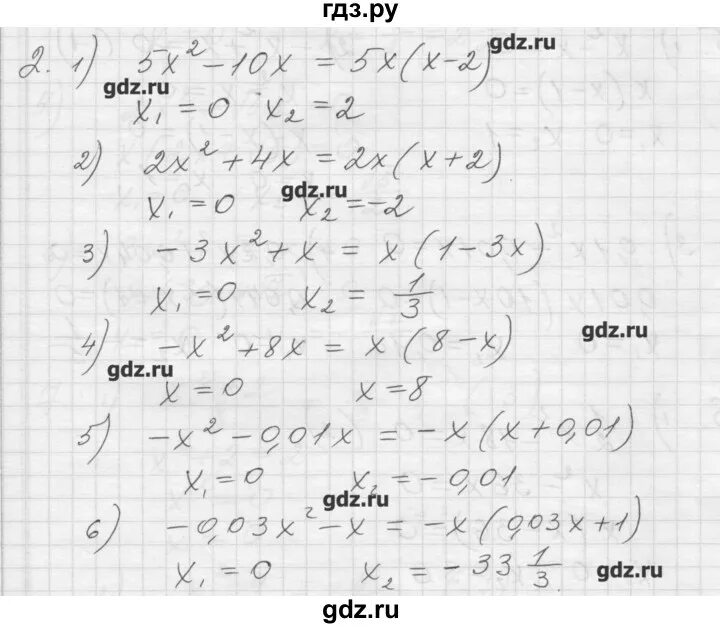 гдз.ру
2. 1) 5x² − 10x = 5x(x−2)
gdz.ru
gdz.ru
x₁ = 0 x₂ = 2
2) 2x² + 4x = 2x(x+2)
gdz.ru
x₁ = 0 x₂ = −2
3) −3x² + x = x(1−3x)
x₁ = 0 x₂ = 1/3
gdz.ru
4) −x² + 8x = x(8−x)
gdz.ru
x = 0 x = 8
5) −x² − 0,01x = −x(x+0,01)
x₁ = 0 x₂ = −0,01
gdz.ru
6) −0,03x² − x = −x(0,03x+1)
x₁ = 0 x₂ = −33 1/3
gdz.ru
gdz.ru